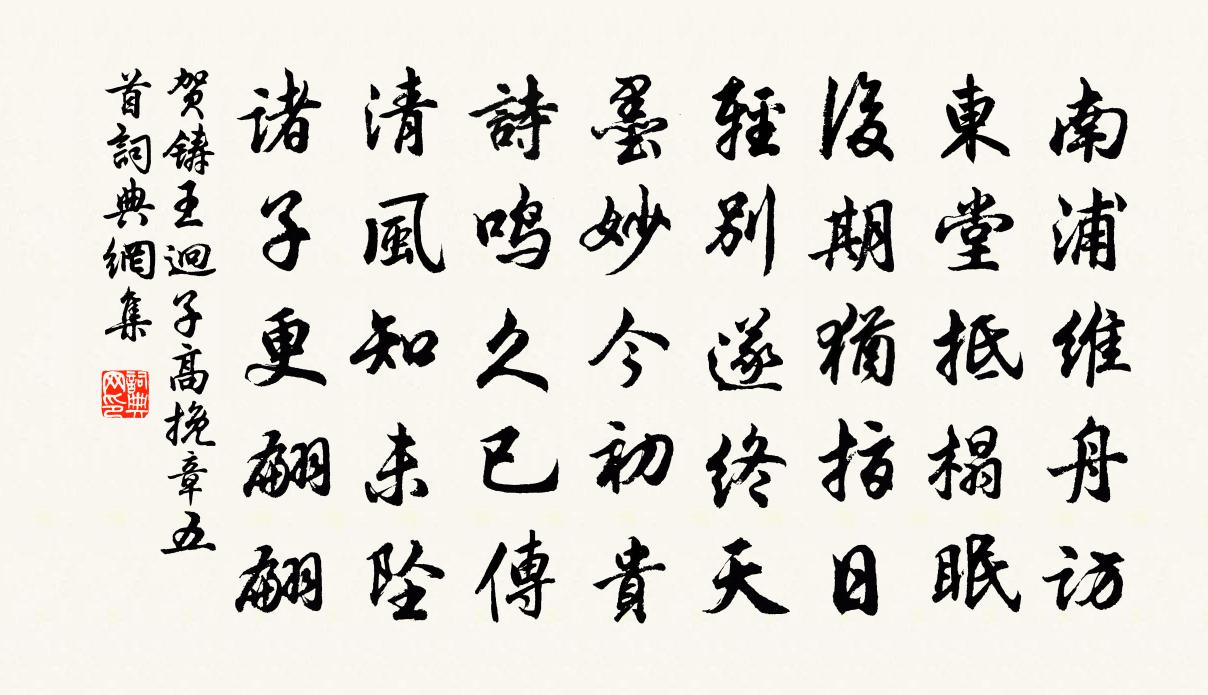 南浦維舟訪
東堂抵榻眠
後期猶指日
輕別遂終天
墨妙今初貴
詩鳴久已傳
清風知未墜
諸子更翩翩
贺鑄王迥子高挽章五
首詞典網集
詞典网印